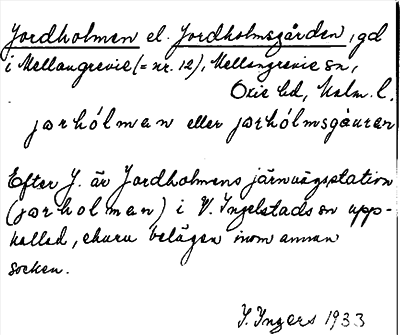 Jordholmen el. Jordholmsgården, gd
i Mellangrevie (= nr. 12), Mellangrevie sn,
Oxie hd, Malm. l.
jɒrhólman eller jɒrhólmsgáuran
Efter J. är Jordholmens järnvägsstation
(jɒrholman) i V. Ingelstads sn upp-
kallad, ehuru belägen inom annan
socken.
I. Ingers 1933